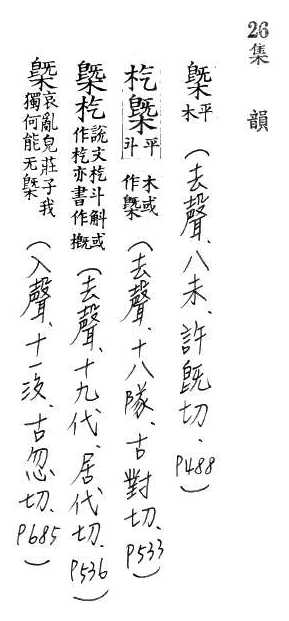 26集 韻
槩平木(去聲、八未、許旣切、P488)
杚槩平斗木或作槩(去聲、十八隊、古對切、P533)
槩杚說文杚斗斛或作杚亦書作概(去聲、十九代、居代切、P536)
槩哀亂皃莊子我獨何能无槩(入聲、十一沒、古忽切、P685)